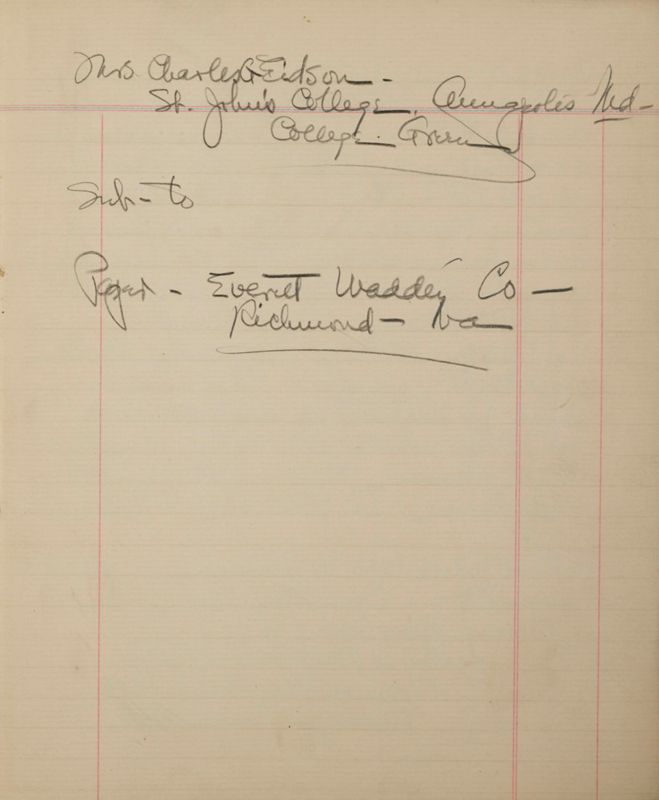 Mrs. Charles G Eidson -
St. John's College, Annapolis Md -
College Green
Sub- to
Paper - Everett Waddey Co -
Richmond - Va